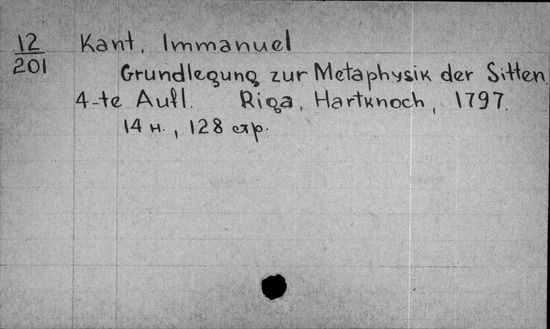 12
201
Kant, Immanuel
Grundlegung zur Metaphysik der Sitten,
4-te Aufl. Riga, Hartknoch, 1797.
14 н., 128 стр.